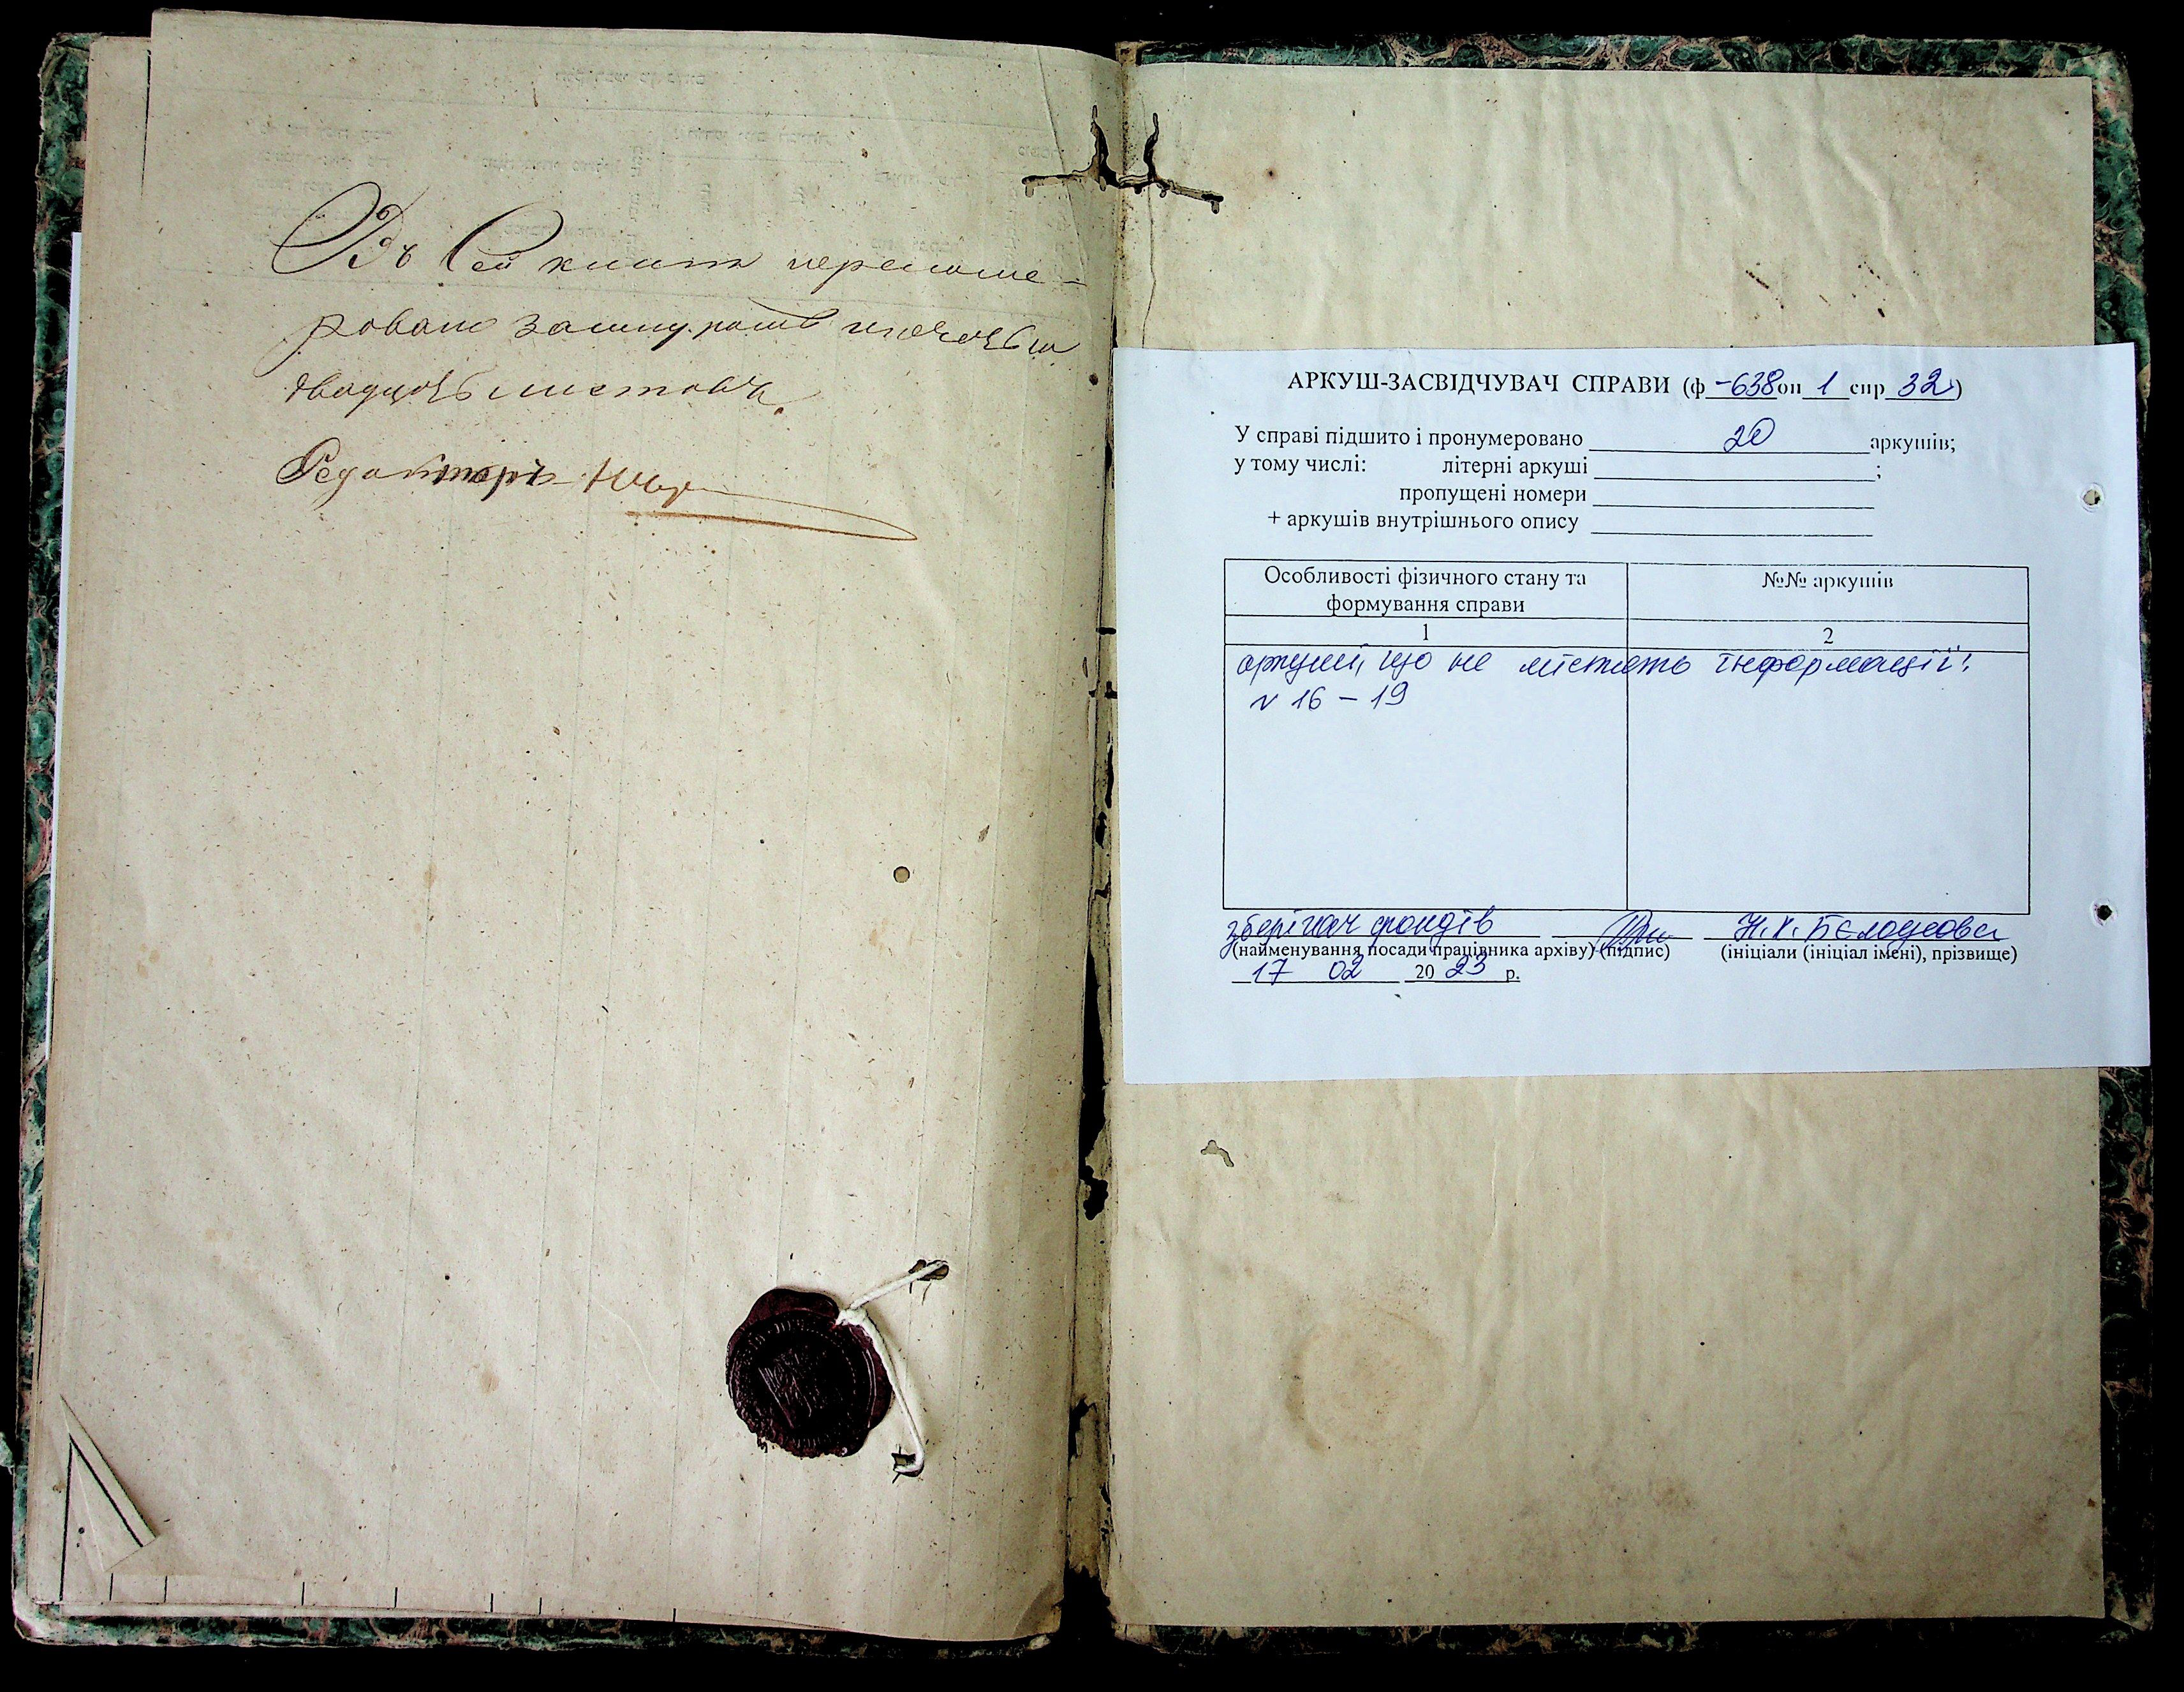 Въ сей книги перенуме-
ровано зашнуровано
двадцать листовъ
Редакторъ
АРКУШ-ЗАСВІДЧУВАЧ СПРАВИ (ф -638 оп 1 спр 32)
У справі підшито і пронумеровано 20 аркушів;
у тому числі: літерні аркуші ;
пропущені номери
+ аркушів внутрішнього опису
Особливості фізичного стану та формування справи
№№ аркушів
1 2
аркуші, що не містять інформації:
№ 16 – 19
зберігач фондів Н.Х.
(найменування посади працівника архіву) (підпис) (ініціали (ініціал імені), прізвище)
17 02 2023 р.